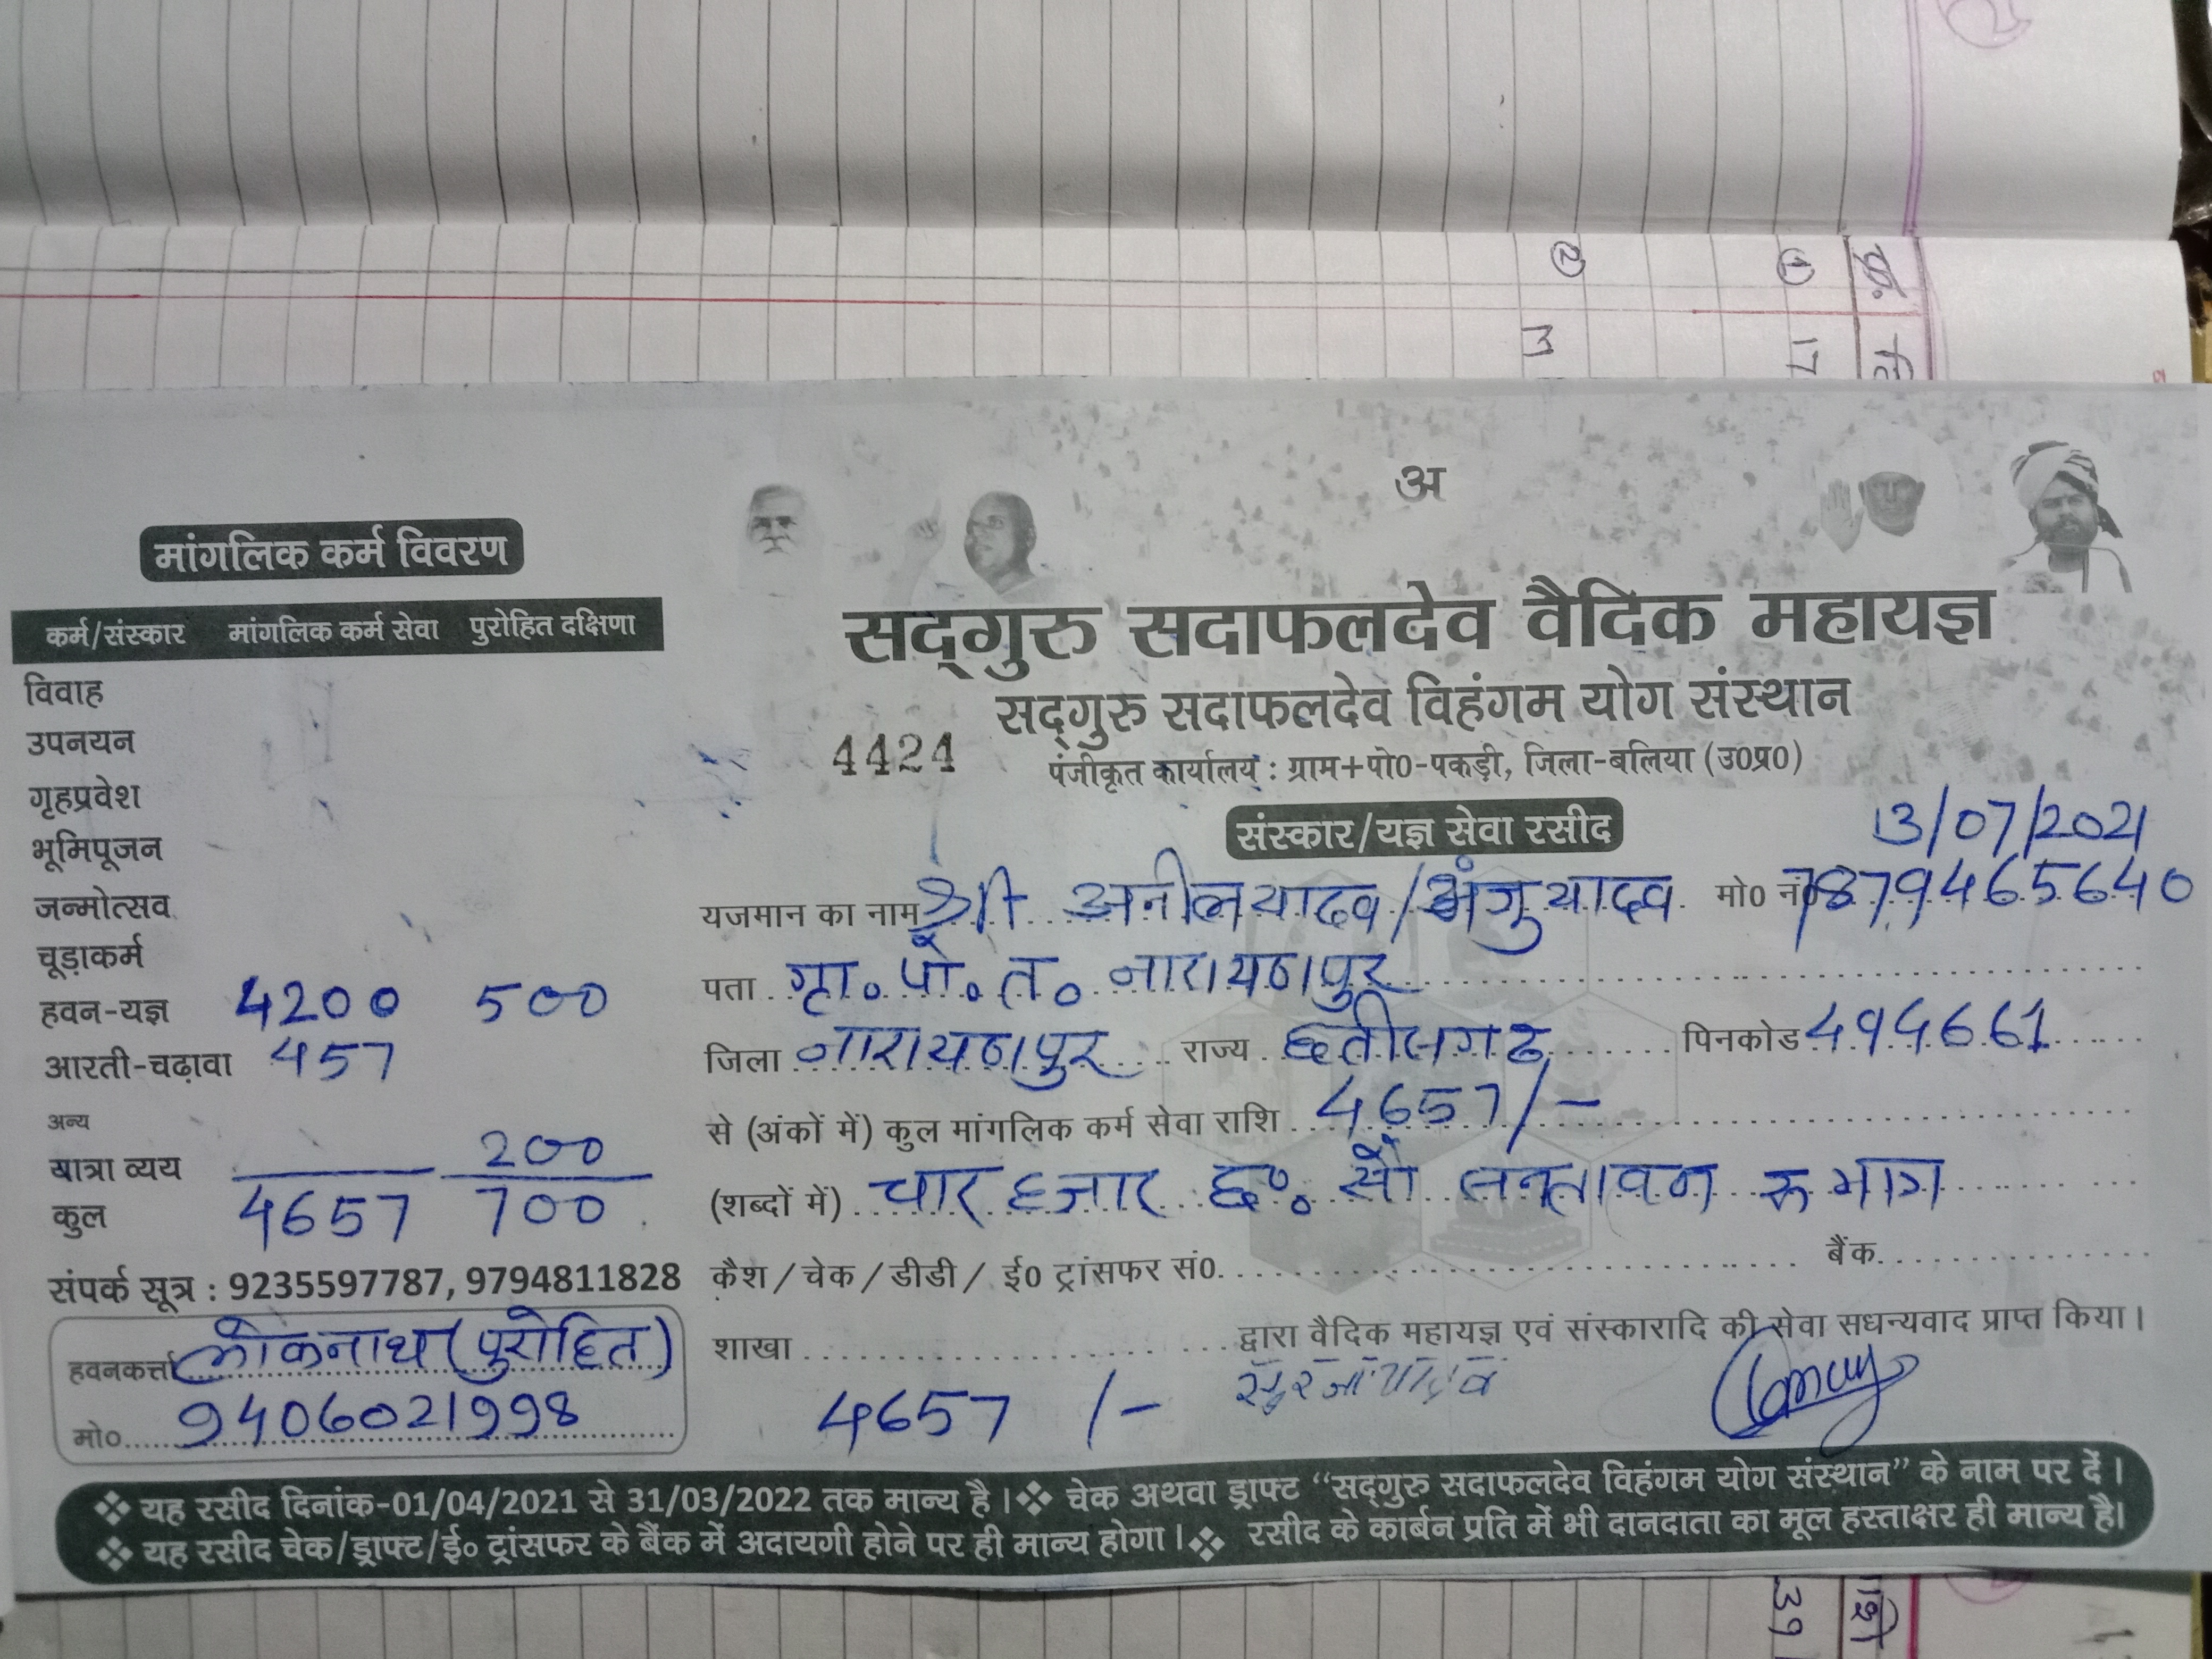 क्र.
①
②
17
3
अ
मांगलिक कर्म विवरण
कर्म/संस्कार मांगलिक कर्म सेवा पुरोहित दक्षिणा
विवाह
उपनयन
गृहप्रवेश
भूमिपूजन
जन्मोत्सव
चूड़ाकर्म
हवन-यज्ञ 4200 500
आरती-चढ़ावा 457
अन्य
यात्रा व्यय 200
कुल 4657 700
संपर्क सूत्र : 9235597787, 9794811828
हवनकर्त्ता लोकनाथ (पुरोहित)
मो० 9406021998
सद्गुरु सदाफलदेव वैदिक महायज्ञ
सद्गुरु सदाफलदेव विहंगम योग संस्थान
4424 पंजीकृत कार्यालय : ग्राम+पो0-पकड़ी, जिला-बलिया (उ0प्र0)
संस्कार/यज्ञ सेवा रसीद 13/07/2021
यजमान का नाम श्री अनील यादव/अंजु यादव मो0 नं0 7879465640
पता ग्रा. पो. त. नारायणपुर
जिला नारायणपुर राज्य छत्तीसगढ पिनकोड 494661
से (अंकों में) कुल मांगलिक कर्म सेवा राशि 4657/-
(शब्दों में) चार हजार छः सौ सन्तावन रु मात्र
कैश / चेक / डीडी / ई0 ट्रांसफर सं0 बैंक
शाखा द्वारा वैदिक महायज्ञ एवं संस्कारादि की सेवा सधन्यवाद प्राप्त किया।
4657 /-
❖ यह रसीद दिनांक-01/04/2021 से 31/03/2022 तक मान्य है। ❖ चेक अथवा ड्राफ्ट “सद्गुरु सदाफलदेव विहंगम योग संस्थान” के नाम पर दें।
❖ यह रसीद चेक/ड्राफ्ट/ई० ट्रांसफर के बैंक में अदायगी होने पर ही मान्य होगा। ❖ रसीद के कार्बन प्रति में भी दानदाता का मूल हस्ताक्षर ही मान्य है।
39